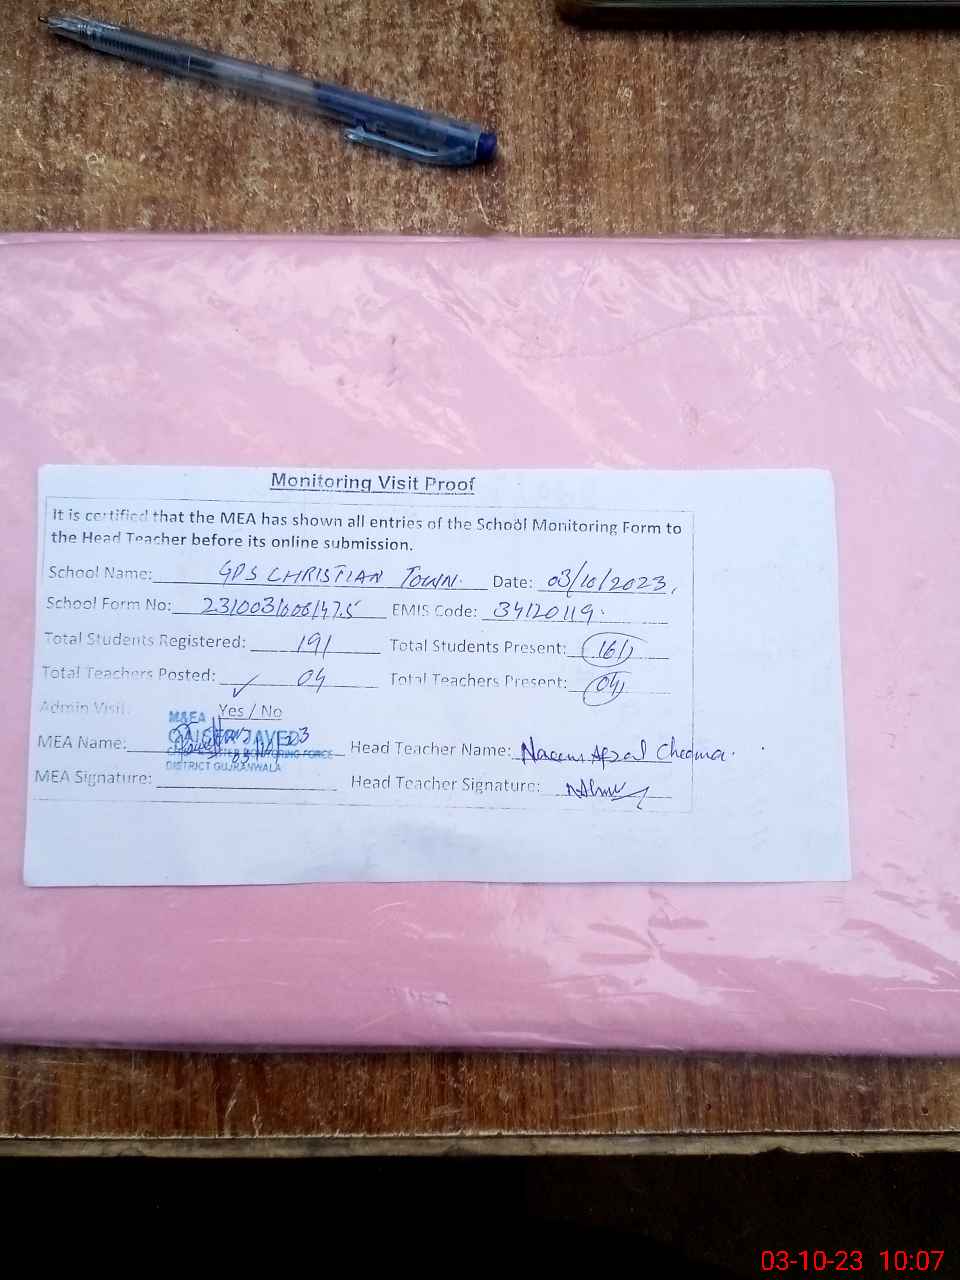 Monitoring Visit Proof
It is certified that the MEA has shown all entries of the School Monitoring Form to
the Head Teacher before its online submission.
School Name: GPS CHRISTIAN TOWN. Date: 03/10/2023,
School Form No: EMIS Code: 34120119.
Total Students Registered: 191 Total Students Present: 161
Total Teachers Posted: 04 Total Teachers Present: 04
Admin Visit: Yes / No
M&EA
QAISER JAVED
MEA Name: Head Teacher Name: Naeem Afzal Cheema.
CHIEF MINISTER MONITORING FORCE
DISTRICT GUJRANWALA
MEA Signature: Head Teacher Signature:
03-10-23 10:07